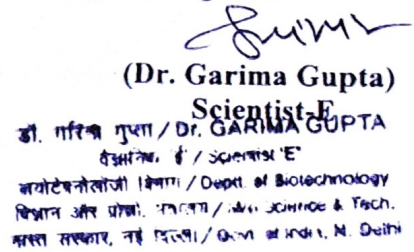 (Dr. Garima Gupta)
Scientist-E
डॉ. गरिमा गुप्ता / Dr. GARIMA GUPTA
वैज्ञानिक 'ई' / Scientist 'E'
बायोटेक्नोलॉजी विभाग / Deptt. of Biotechnology
विज्ञान और प्रौद्यो. मंत्रालय / Min. Science & Tech.
भारत सरकार, नई दिल्ली / Govt. of India, N. Delhi